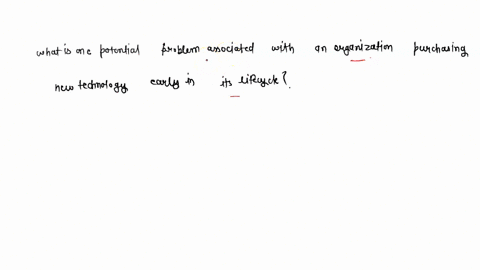 what is one potential problem associated with an organization purchasing
new technology early in its lifecycle?